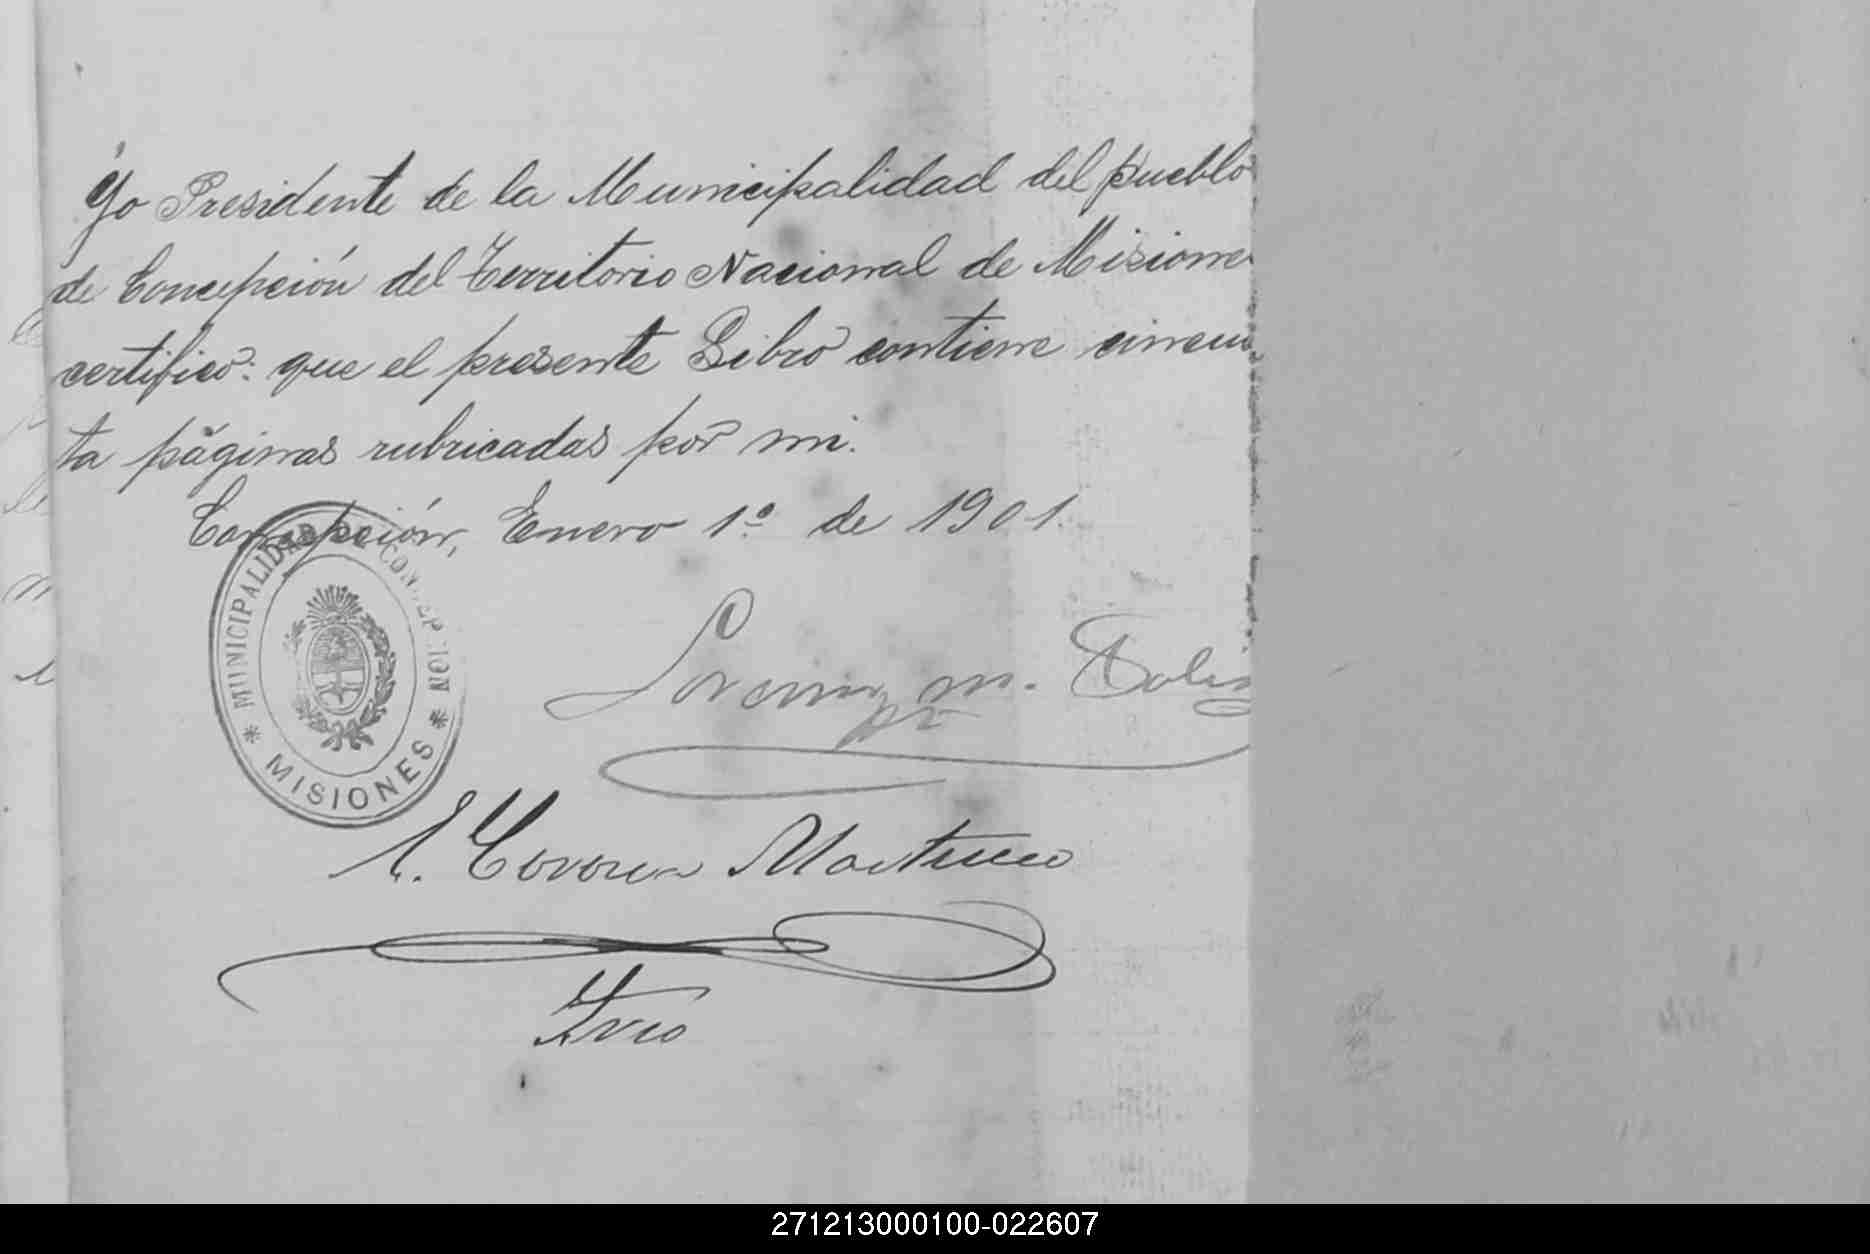 Yo Presidente de la Municipalidad del pueblo
de Concepción del Territorio Nacional de Misiones
certifico: que el presente Libro contiene cincuen
ta páginas rubricadas por mi.
Concepción, Enero 1º de 1901.
MUNICIPALIDAD DE CONCEPCION
* MISIONES *
m.
Srio
271213000100-022607